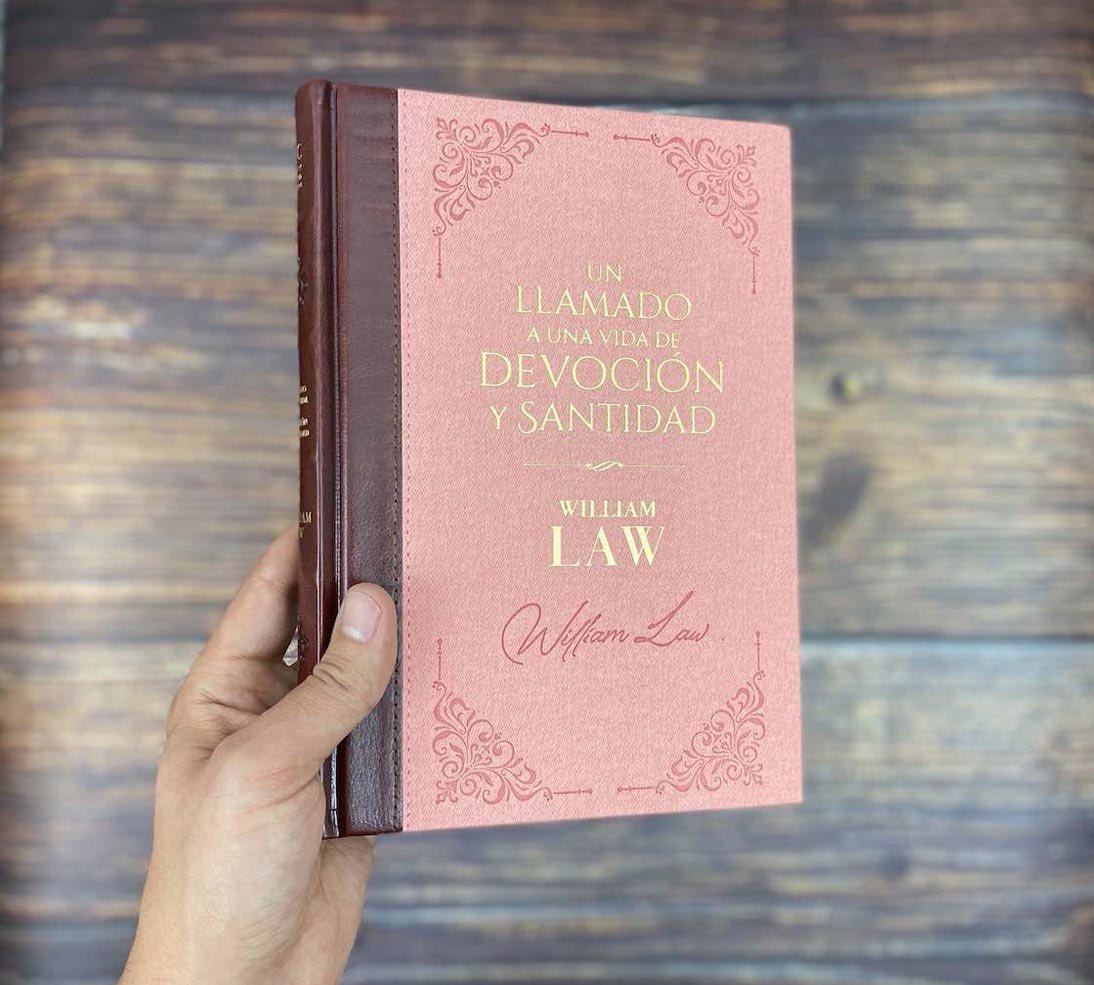 UN
LLAMADO
A UNA VIDA DE
DEVOCIÓN
Y SANTIDAD
WILLIAM
LAW
William Law